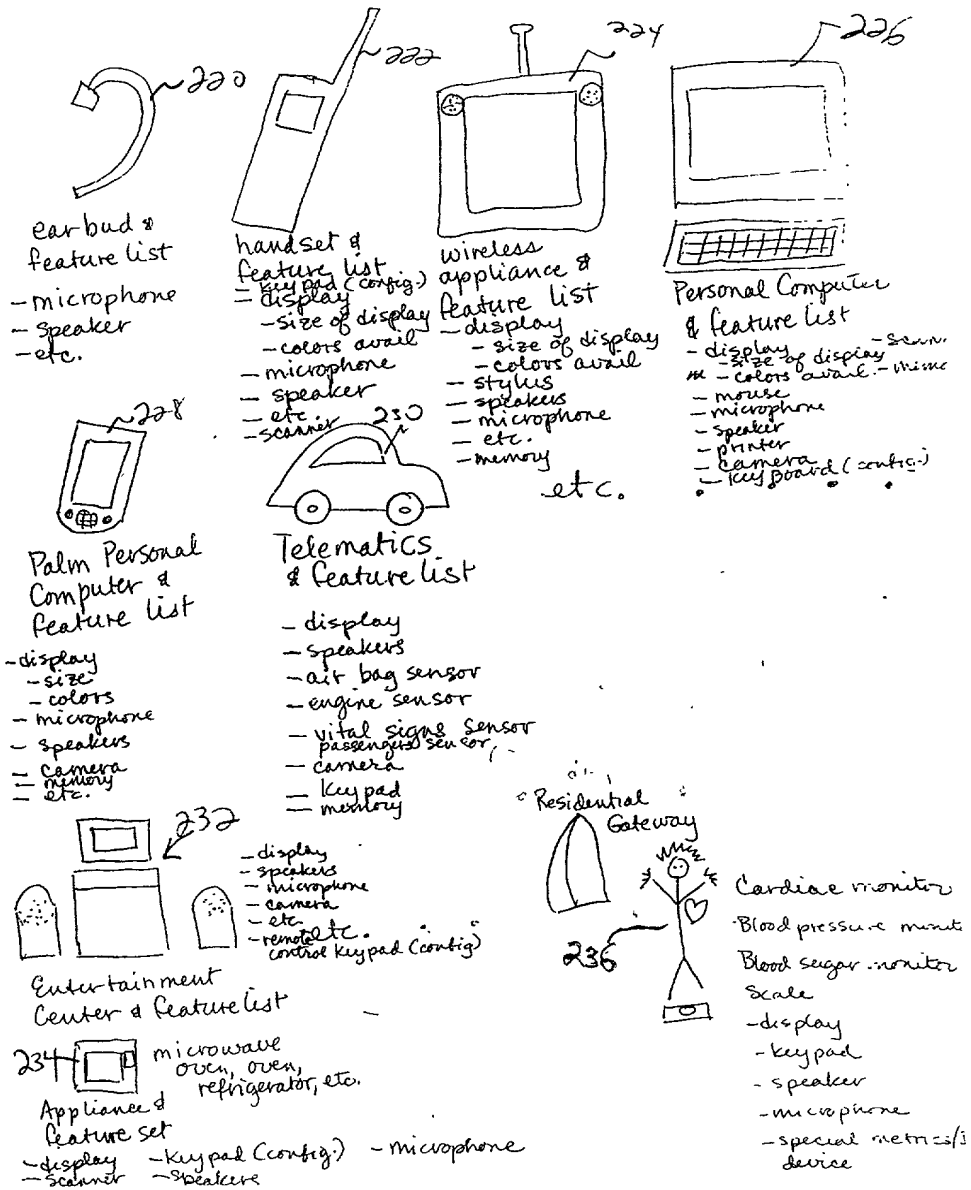 220
222
224
226
ear bud &
feature list
- microphone
- speaker
- etc.
handset &
feature list
- keypad (config.)
- display
- size of display
- colors avail
- microphone
- speaker
- etc.
- scanner
wireless
appliance &
feature list
- display
- size of display
- colors avail
- stylus
- speakers
- microphone
- etc.
- memory
etc.
Personal Computer
& feature list
- display
- size of display
- colors avail.
- mouse
- microphone
- speaker
- printer
- camera
- keyboard (config.)
228
Palm Personal
Computer &
feature list
- display
- size
- colors
- microphone
- speakers
- camera
- memory
- etc.
230
Telematics
& feature list
- display
- speakers
- air bag sensor
- engine sensor
- vital signs sensor
passengers sensor
- camera
- keypad
- memory
232
- display
- speakers
- microphone
- camera
- etc.
- remote etc.
control keypad (config)
Entertainment
Center & feature list
234
microwave
oven, oven,
refrigerator, etc.
Appliance &
feature set
- display - keypad (config.) - microphone
- scanner - speakers
Residential
Gateway
236
Cardiac monitor
Blood pressure
Blood sugar monitor
Scale
- display
- keypad
- speaker
- microphone
- special
device